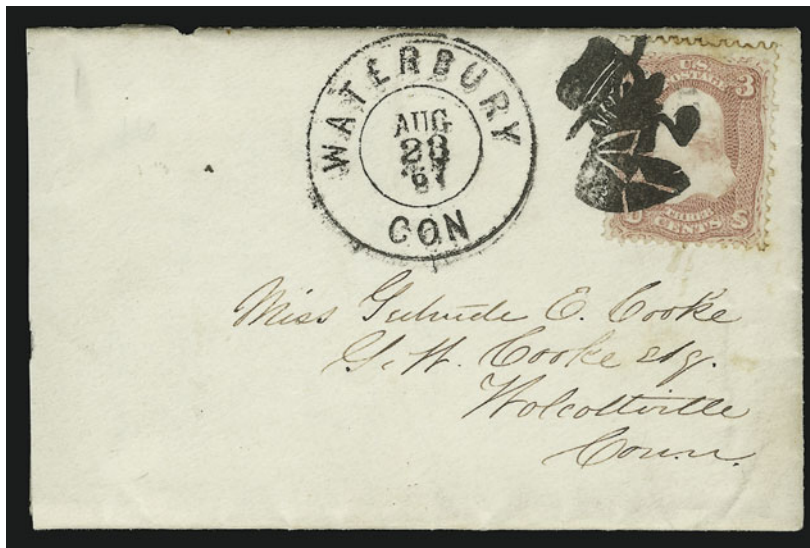 WATERBURY
AUG
28
CON
U.S. 3
POSTAGE
CENTS
Miss Gertrude E. Cooke
G. W. Cooke esq.
Wolcottville
Conn.